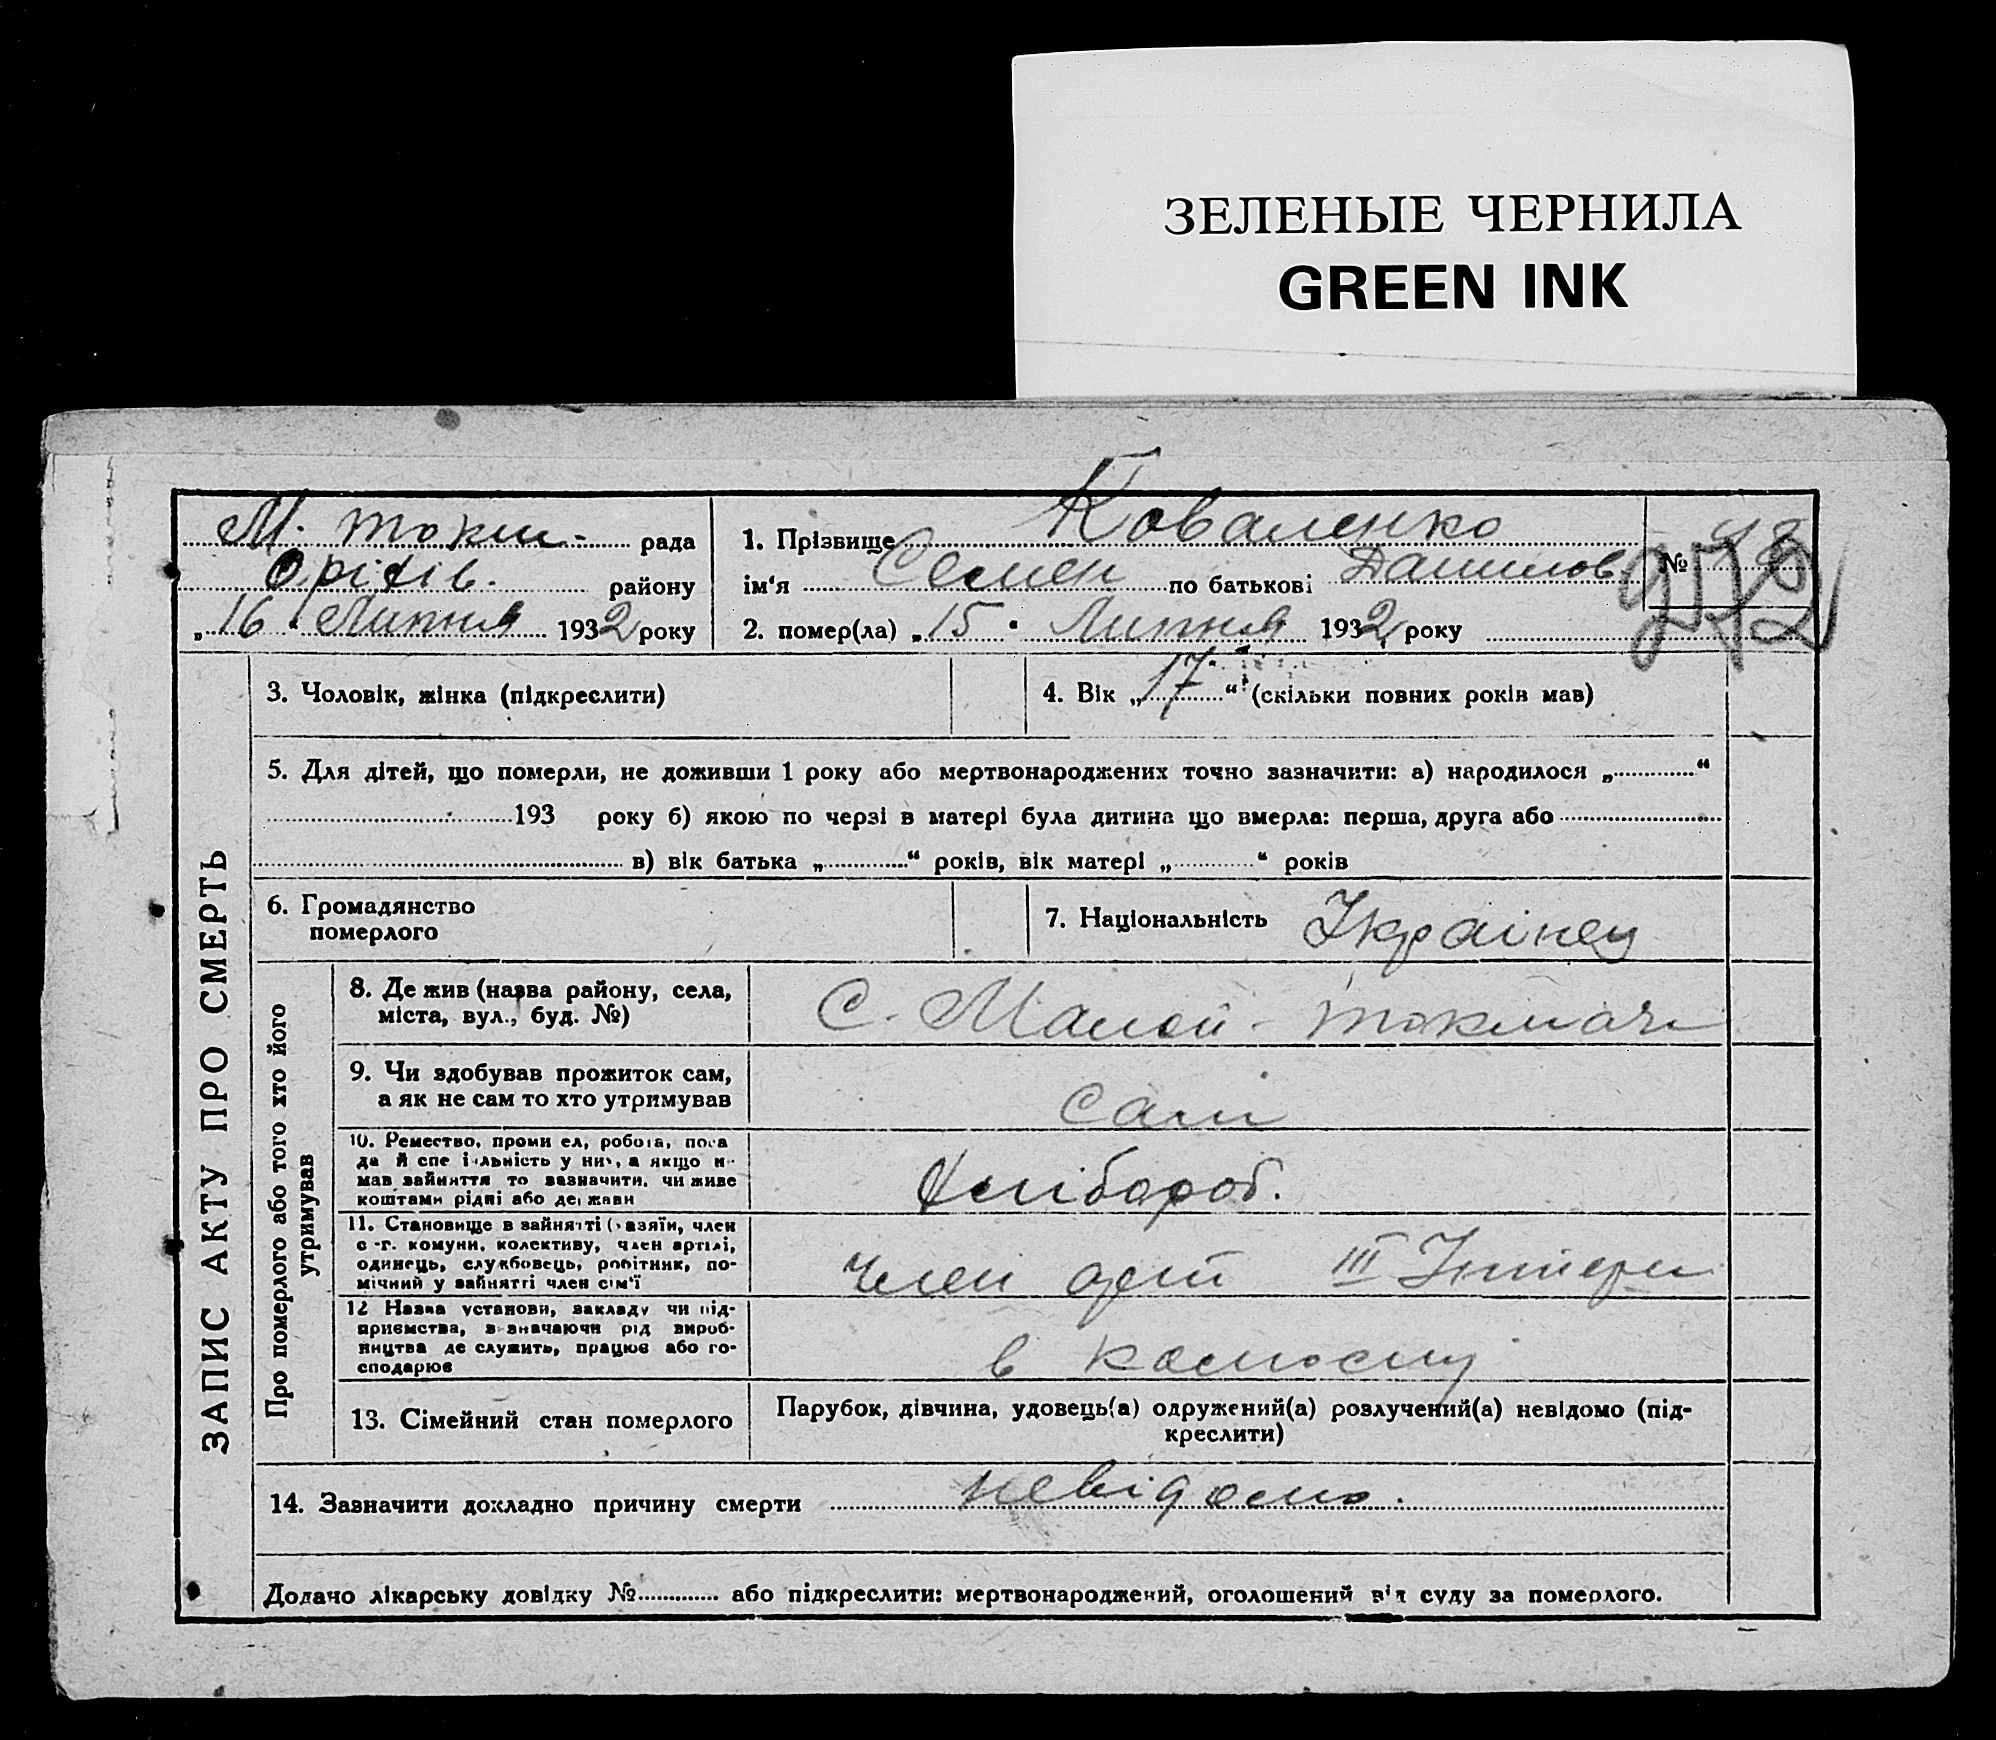 ЗЕЛЕНЫЕ ЧЕРНИЛА
GREEN INK
М. токм. рада
Оріхів. району
„16" Липня 1932 року
1. Прізвище Коваленко
ім'я Семен по батькові Данилов
2. помер(ла) „15" Липня 1932 року
№ 48
272
ЗАПИС АКТУ ПРО СМЕРТЬ
3. Чоловік, жінка (підкреслити)
4. Вік „17" (скільки повних років мав)
5. Для дітей, що померли, не доживши 1 року або мертвонароджених точно зазначити: а) народилося „ "
193 року б) якою по черзі в матері була дитина що вмерла: перша, друга або
в) вік батька „ " років, вік матері „ " років
6. Громадянство
померлого
7. Національність Українец
Про померлого або того хто його
утримував
8. Де жив (назва району, села,
міста, вул., буд. №)
С. Малой-токмач
9. Чи здобував прожиток сам,
а як не сам то хто утримував
сам
10. Ремество, промисел, робота, поса
да й спеціяльність у них, а якщо н
мав зайняття то зазначити, чи живе
коштами рідні або держави
Хліброб.
11. Становище в зайнятті (хазяїн, член
с-г. комуни, колективу, член артілі,
одинець, службовець, робітник, по-
мічний у зайнятті член сім'ї
член арт III Інтерн
12 Назва установи, закладу чи під-
приємства, зазначаючи рід вироб-
ництва де служить, працює або го-
сподарює
в колоспу
13. Сімейний стан померлого
Парубок, дівчина, удовець(а) одружений(а) розлучений(а) невідомо (під-
креслити)
14. Зазначити докладно причину смерти невідомо.
Додачо лікарську довідку № або підкреслити: мертвонароджений, оголошений від суду за померлого.